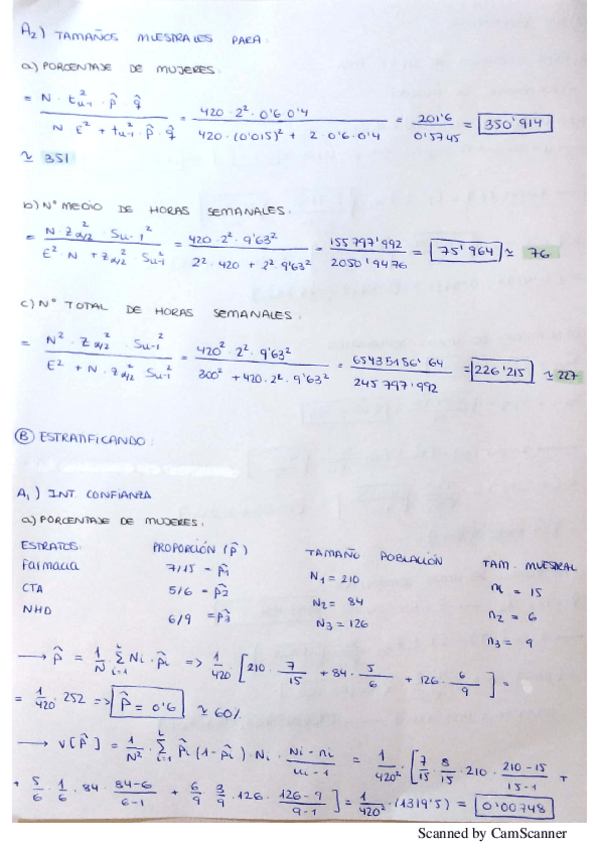 A2) TAMAÑOS MUESTRALES PARA:
a) PORCENTAJE DE MUJERES.
= N · t²n-1 · p̂ · q̂ / N E² + tn-1² · p̂ · q̂ = 420 · 2² · 0'6 0'4 / 420 · (0'015)² + 2 · 0'6 · 0'4 = 201'6 / 0'5745 = 350'914
≃ 351
b) Nº MEDIO DE HORAS SEMANALES.
= N · Zα/2² · Sn-1² / E² · N + Zα/2² · Sn-1² = 420 · 2² · 9'63² / 2² · 420 + 2² · 9'63² = 155797'992 / 2050'9476 = 75'964 ≃ 76
c) Nº TOTAL DE HORAS SEMANALES.
= N² · Zα/2² · Sn-1² / E² + N · Zα/2² Sn-1² = 420² · 2² · 9'63² / 300² + 420 · 2² · 9'63² = 65435156'64 / 245797'992 = 226'215 ≃ 227
B ESTRATIFICANDO:
A1) INT CONFIANZA
a) PORCENTAJE DE MUJERES.
ESTRATOS: PROPORCIÓN (p̂) TAMAÑO POBLACIÓN TAM. MUESTRAL
Farmacia 7/15 = p̂1 N1 = 210 n1 = 15
CTA 5/6 = p̂2 N2 = 84 n2 = 6
NHD 6/9 = p̂3 N3 = 126 n3 = 9
→ p̂ = 1/N · Σ i=1 Ni · p̂i => 1/420 · [210 · 7/15 + 84 · 5/6 + 126 · 6/9] =
= 1/420 · 252 => p̂ = 0'6 ≃ 60%
→ V[p̂] = 1/N² · Σ i=1 p̂i (1-p̂i) · Ni · Ni - ni / ni - 1 = 1/420² · [7/15 · 8/15 · 210 · 210-15 / 15-1 +
+ 5/6 · 1/6 · 84 · 84-6 / 6-1 + 6/9 · 3/9 · 126 · 126-9 / 9-1] = 1/420² · (1319'5) = 0'00748
Scanned by CamScanner